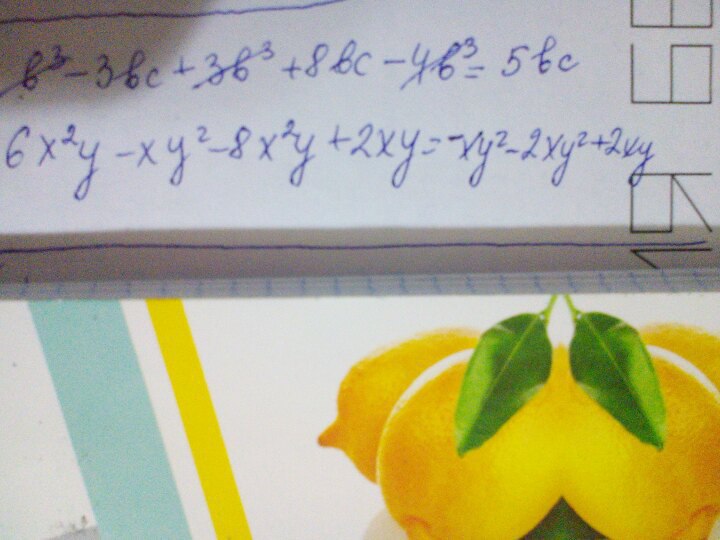 b³ - 3bc + 3b³ + 8bc - 4b³ = 5bc
6x²y - xy² - 8x²y + 2xy = -xy² - 2xy² + 2xy